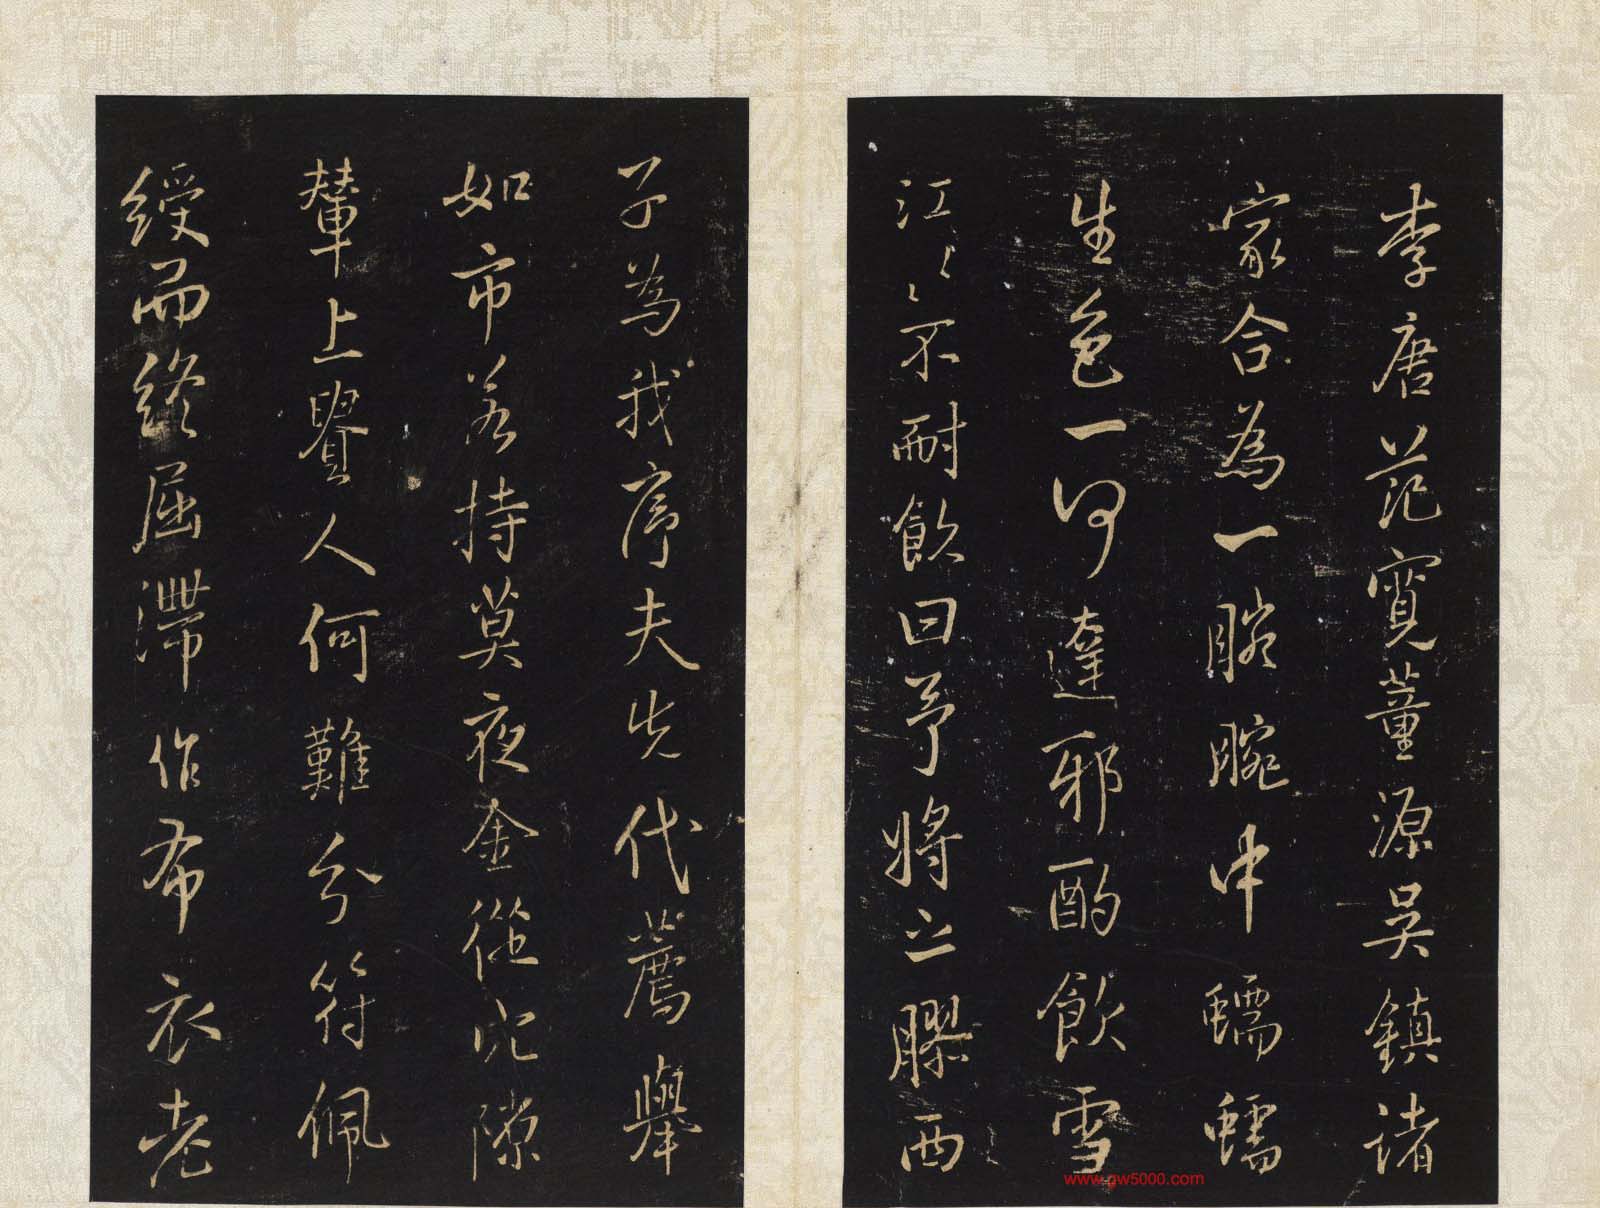 李唐范寬董源吴鎮諸
家合為一腕腕中蠕蠕
生色一何達邪酌飲雪
江江不耐飲曰予將之膠西
子為我序夫先代薦舉
如市若持莫夜金從穴隙
輦上譽人何難分符佩
綬而終屈滯作布衣老
www.gw5000.com